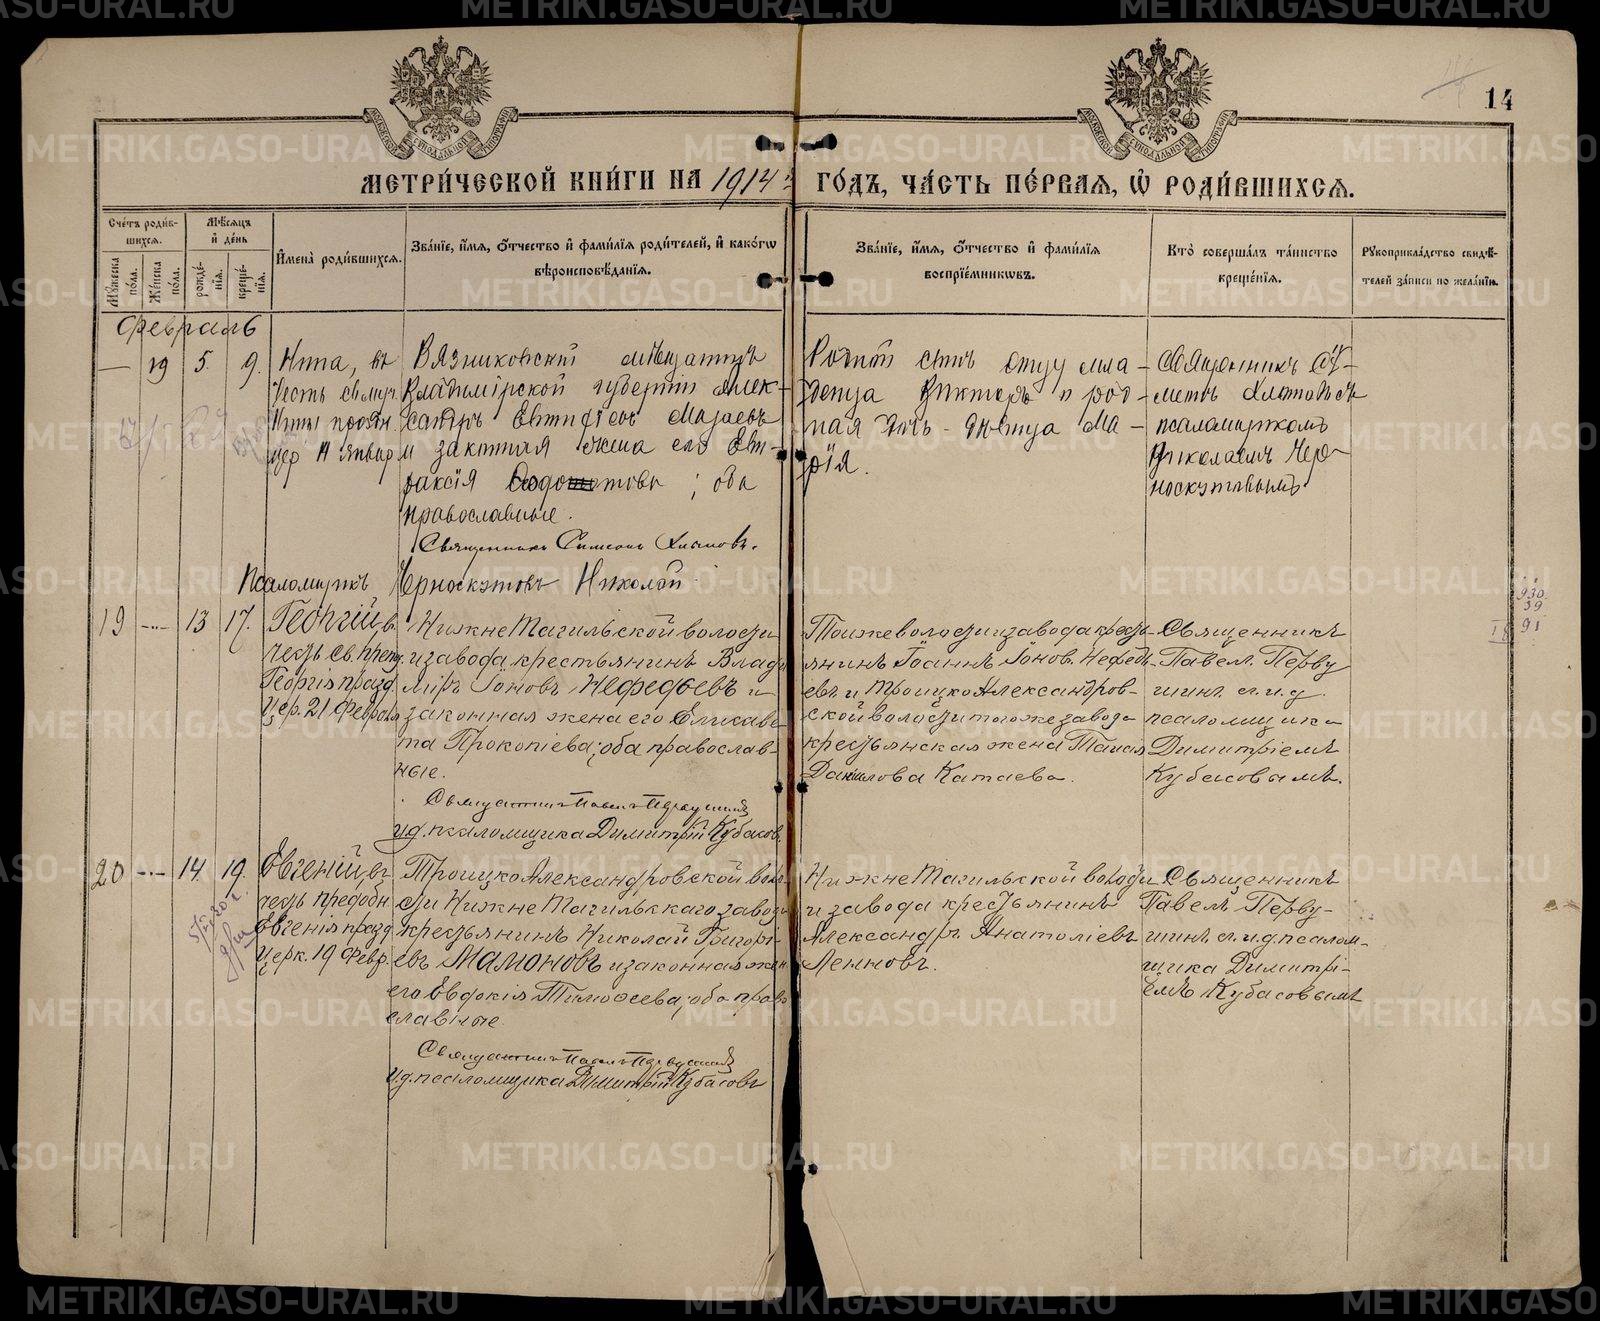 14
МЕТРИ́ЧЕСКОЙ КНИ́ГИ НА 1914 ГО́ДЪ, ЧА́СТЬ ПЕ́РВАЯ, Ѡ РОДИ́ВШИХСЯ.
Сче́тъ роди́в-
шихся.
Му́жеска по́ла.
Же́нска по́ла.
Мѣ́сяцъ
и де́нь
рожде́-
нія.
креще́-
нія.
Имена̀ роди́вшихся.
Зва́ніе, и́мя, о́тчество и фами́лія роди́телей, и како́гѡ
вѣроисповѣ́данія.
Зва́ніе, и́мя, о́тчество и фами́лія
воспріе́мниковъ.
Кто̀ соверша́лъ та́инство
креще́нія.
Рꙋкоприкла́дство свидѣ́-
телей за́писи по жела́нію.
Февраль
— 19 5. 9.
Нина, въ
честь св. муч.
Нины праздн.
14 Январ
Вязниковскій мѣщанинъ
Владимірской губерніи Алек-
сандръ Евтифѣевъ Мазаевъ
и законная жена его Евп-
раксія ; оба
православные.
Священникъ Симеонъ
Псаломщикъ Черноскутовъ Николай
Родной братъ отцу мла-
денца Викторъ и род-
ная дѣвица Ма-
рія.
Священникъ Си-
меонъ съ
псаломщикомъ
Николаемъ Чер-
носкутовымъ
19 -"- 13 17.
Георгій, въ
честь св. преп.
Георгія празд.
Цер. 21 Февраля
НижнеТагильской волости
и завода крестьянинъ Влади
міръ Іоновъ Нефедьевъ и
законная жена его Елисаве
та Прокопіева; оба православ-
ные.
Священникъ Павелъ Первушинъ
И.д. псаломщика Димитрій Кубасовъ.
Той же волости и завода кресть-
янинъ Іоаннъ Іоновъ Нефедь-
евъ и Троицко Александров-
ской волости того же завода
крестьянская жена Таисія
Данилова Катаева.
Священникъ
Павелъ Перву
шинъ с и.д.
псаломщика
Димитріемъ
Кубасовымъ.
930.
39
91
20 -"- 14. 19.
Евгеній, въ
честь преподобн.
Евгенія празд
Церк. 19 Февр.
Троицко Александровской воло
сти Нижне Тагильскаго завода
крестьянинъ Николай Григорі-
евъ Мамоновъ и законная жен
его Евдокія Тимоѳеева; оба право
славные.
Священникъ Павелъ Первушинъ
И.д. псаломщика Димитрій Кубасовъ
Нижне Тагильской волости
и завода крестьянинъ
Александръ Анатоліевъ
Священникъ
Павелъ Перву-
шинъ с и.д. псалом-
щика Димитрі-
емъ Кубасовымъ
METRIKI.GASO-URAL.RU